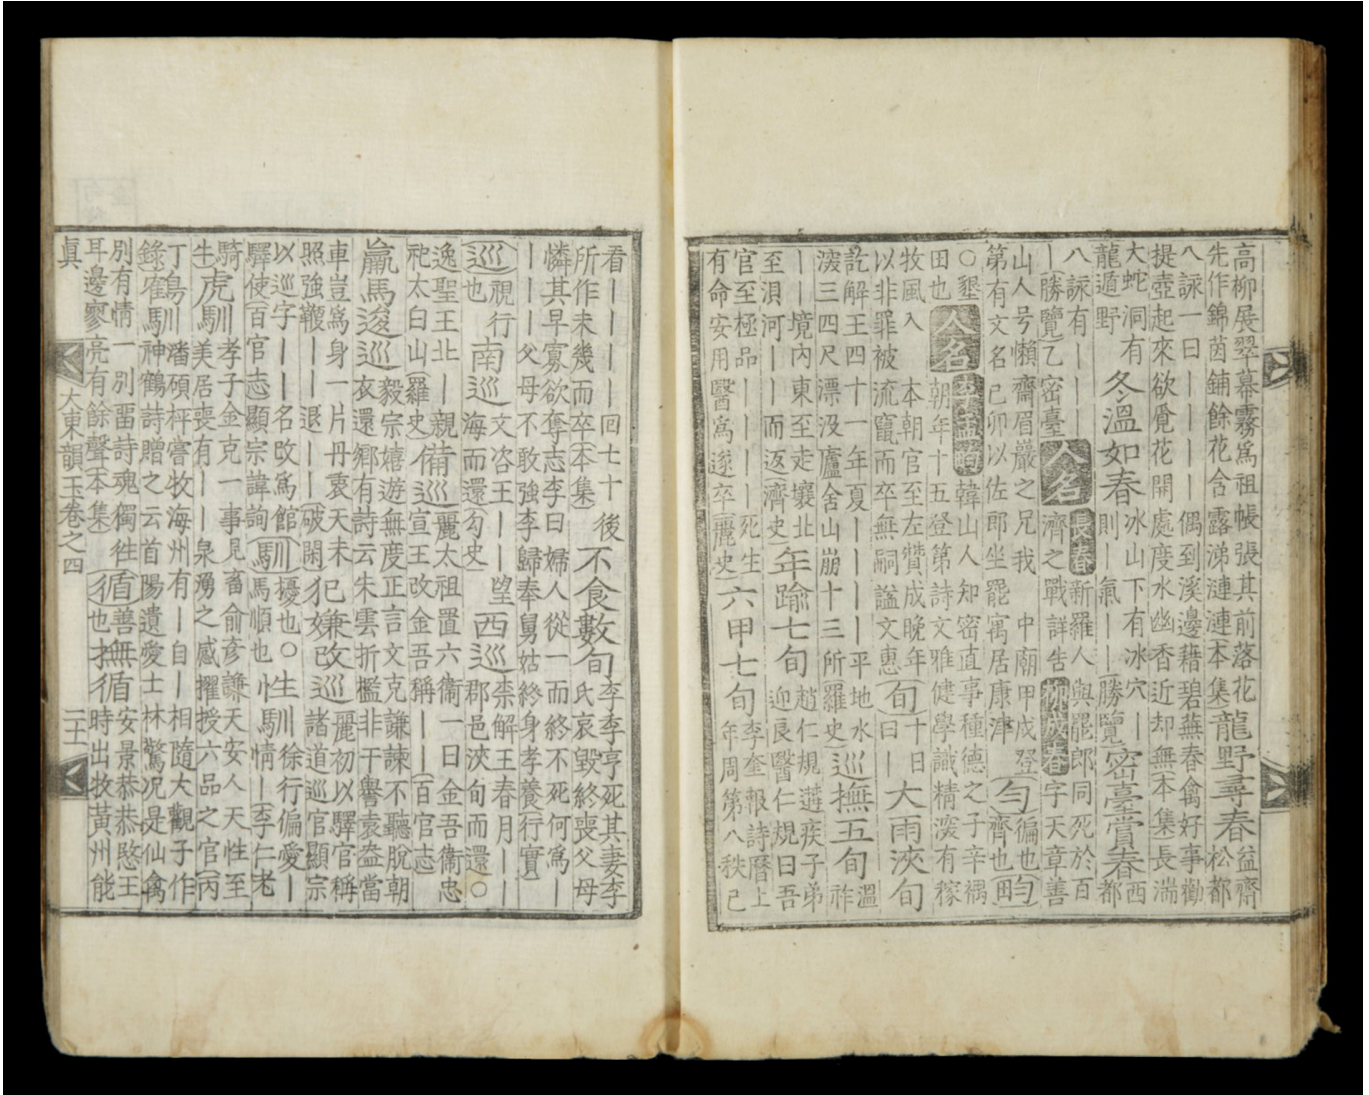 高柳展翠幕霧爲祖帳張其前落花先作錦茵鋪餘花含露涕漣漣本集龍野尋春益齋松都
八詠一曰｜｜｜｜偶到溪邊藉碧蕪春禽好事勸提壺起來欲覓花開處度水幽香近却無本集長湍
大蛇洞有龍遁野冬溫如春氷山下有氷穴｜則｜氣｜｜勝覽密臺賞春西都
八詠有｜｜｜｜勝覽乙密臺人名長春新羅人與罷郎同死於百濟之戰詳告柳成春字天章善
山人号懶齋眉巖之兄我中廟甲戌登第有文名己卯以佐郎坐罷寓居康津勻徧也齊也畇
○墾田也人名李畇韓山人知密直事種德之子辛禑朝年十五登第詩文雅健學識精深有稼
牧風入本朝官至左贊成晚年以非罪被流竄而卒無嗣謚文惠旬十日曰｜大雨浹旬
訖解王四十一年夏｜｜｜｜平地水深三四尺漂沒廬舍山崩十三所羅史巡撫五旬溫祚
｜｜境內東至走壤北至浿河｜｜而返濟史年踰七旬趙仁規遘疾子弟迎良醫仁規曰吾
官至極品｜｜｜｜死生有命安用醫爲遂卒麗史六甲七旬李奎報詩曆上年周第八秩己
看｜｜｜｜回七十後所作未幾而卒本集不食數旬李李亨死其妻李氏哀毀終喪父母
憐其早寡欲奪志李曰婦人從一而終不死何爲｜｜｜父母不敢強李歸奉舅姑終身孝養行實
巡視行也南巡文咨王｜｜望海而還勾史西巡柰解王春月｜｜郡邑浹旬而還○
逸聖王北｜親祀太白山羅史備巡麗太祖置六衞一日金吾衞忠宣王改金吾稱｜｜百官志
羸馬逡巡毅宗嬉遊無度正言文克謙諫不聽脫朝衣還鄕有詩云朱雲折檻非干譽袁盎當
車豈爲身一片丹衷天未照強鞭｜｜退｜｜破閑犯嫌改巡麗初以驛官稱諸道巡官顯宗
以巡字｜｜名改爲館驛使百官志顯宗諱詢馴擾也○馬順也性生馴徐行偏愛｜馴情｜李仁老
騎虎馴孝子金克一事見畜生美居喪有｜｜泉湧之感擢俞彦謙天安人天性至授六品之官丙
丁鳥馴潘碩枰嘗牧海州有｜自｜相隨大觀子作錄寉馴神鶴詩贈之云首陽遺愛士林驚况是仙禽
別有情一別留詩魂獨徃耳邊寥亮有餘聲本集循善也無循安景恭恭愍王時出牧黃州能
眞
大東韻玉卷之四
二十一